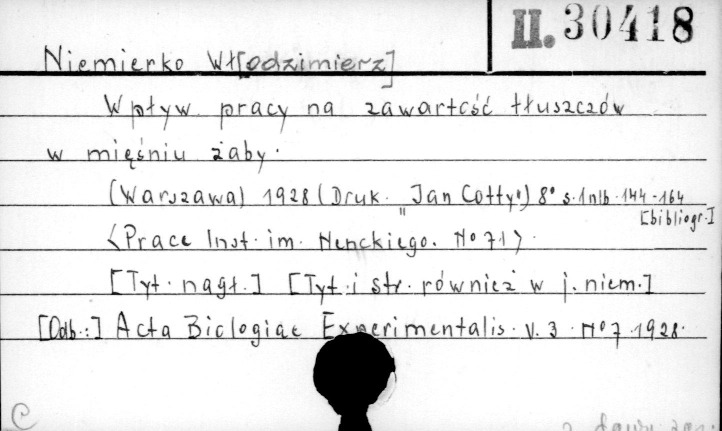 II. 30418
Niemierko Wł[odzimierz]
Wpływ pracy na zawartość tłuszczów
w mięśniu żaby.
(Warszawa) 1928 (Druk. "Jan Cotty") 8° s. 1 nlb. 144-164
[bibliogr.]
<Prace Inst. im. Nenckiego. No 71>
[Tyt. nagł.] [Tyt. i str. również w j. niem.]
[Odb.:] Acta Biologiae Experimentalis. V. 3. No 7. 1928.
C